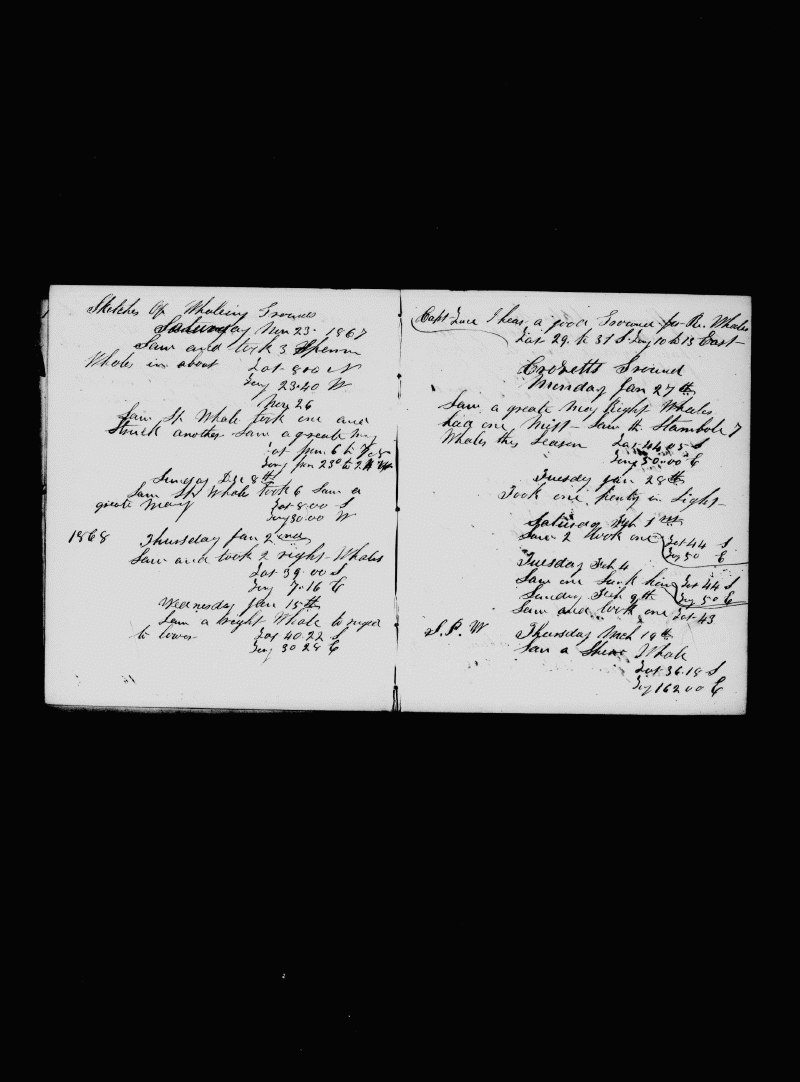 Sketches Of Whaling Grounds
Saturday Nov 23. 1867
Saw and took 3 Sperm
Whales in about Lat 8.00 N
Long 23.40 W
Nov 26
Saw Sp Whale took one and
Struck another Saw a greate many
Lat from 6 to
Long from 23° to
Sunday Dec 8th
Saw Sp Whale took 6 Saw a
greate many Lat 8.00 S
Long 30.00 W
1868 Thursday Jan 2 ond
Saw and took 2 right Whales
Lat 39.00 S
Long 7.16 E
Wednesday Jan 15th
Saw a bright Whale to
to lower Lat 40.22 S
Long 30 28 E
Capt Luce I hear a good Ground for Ri. Whales
Lat 29. to 31 S Long 10 to 15 East
Crozetts Ground
Monday Jan 27th
Saw a greate many Right Whales
had one, Saw the
Whales this Season Lat 44.05 S
Long 50.00 E
Tuesday Jan 28th
Took one plenty in Sight
Saturday Feb 1 st
Saw 2 took one Lat 44 S
Long 50 E
Tuesday Feb 4
Saw one Sunk him Lat 44 S
Sunday Feb 9th Long 50 E
Saw and took one Lat 43
S. P. W Thursday Mch 19th
Saw a Sperm Whale
Lat 36.18 S
Long 162 00 E